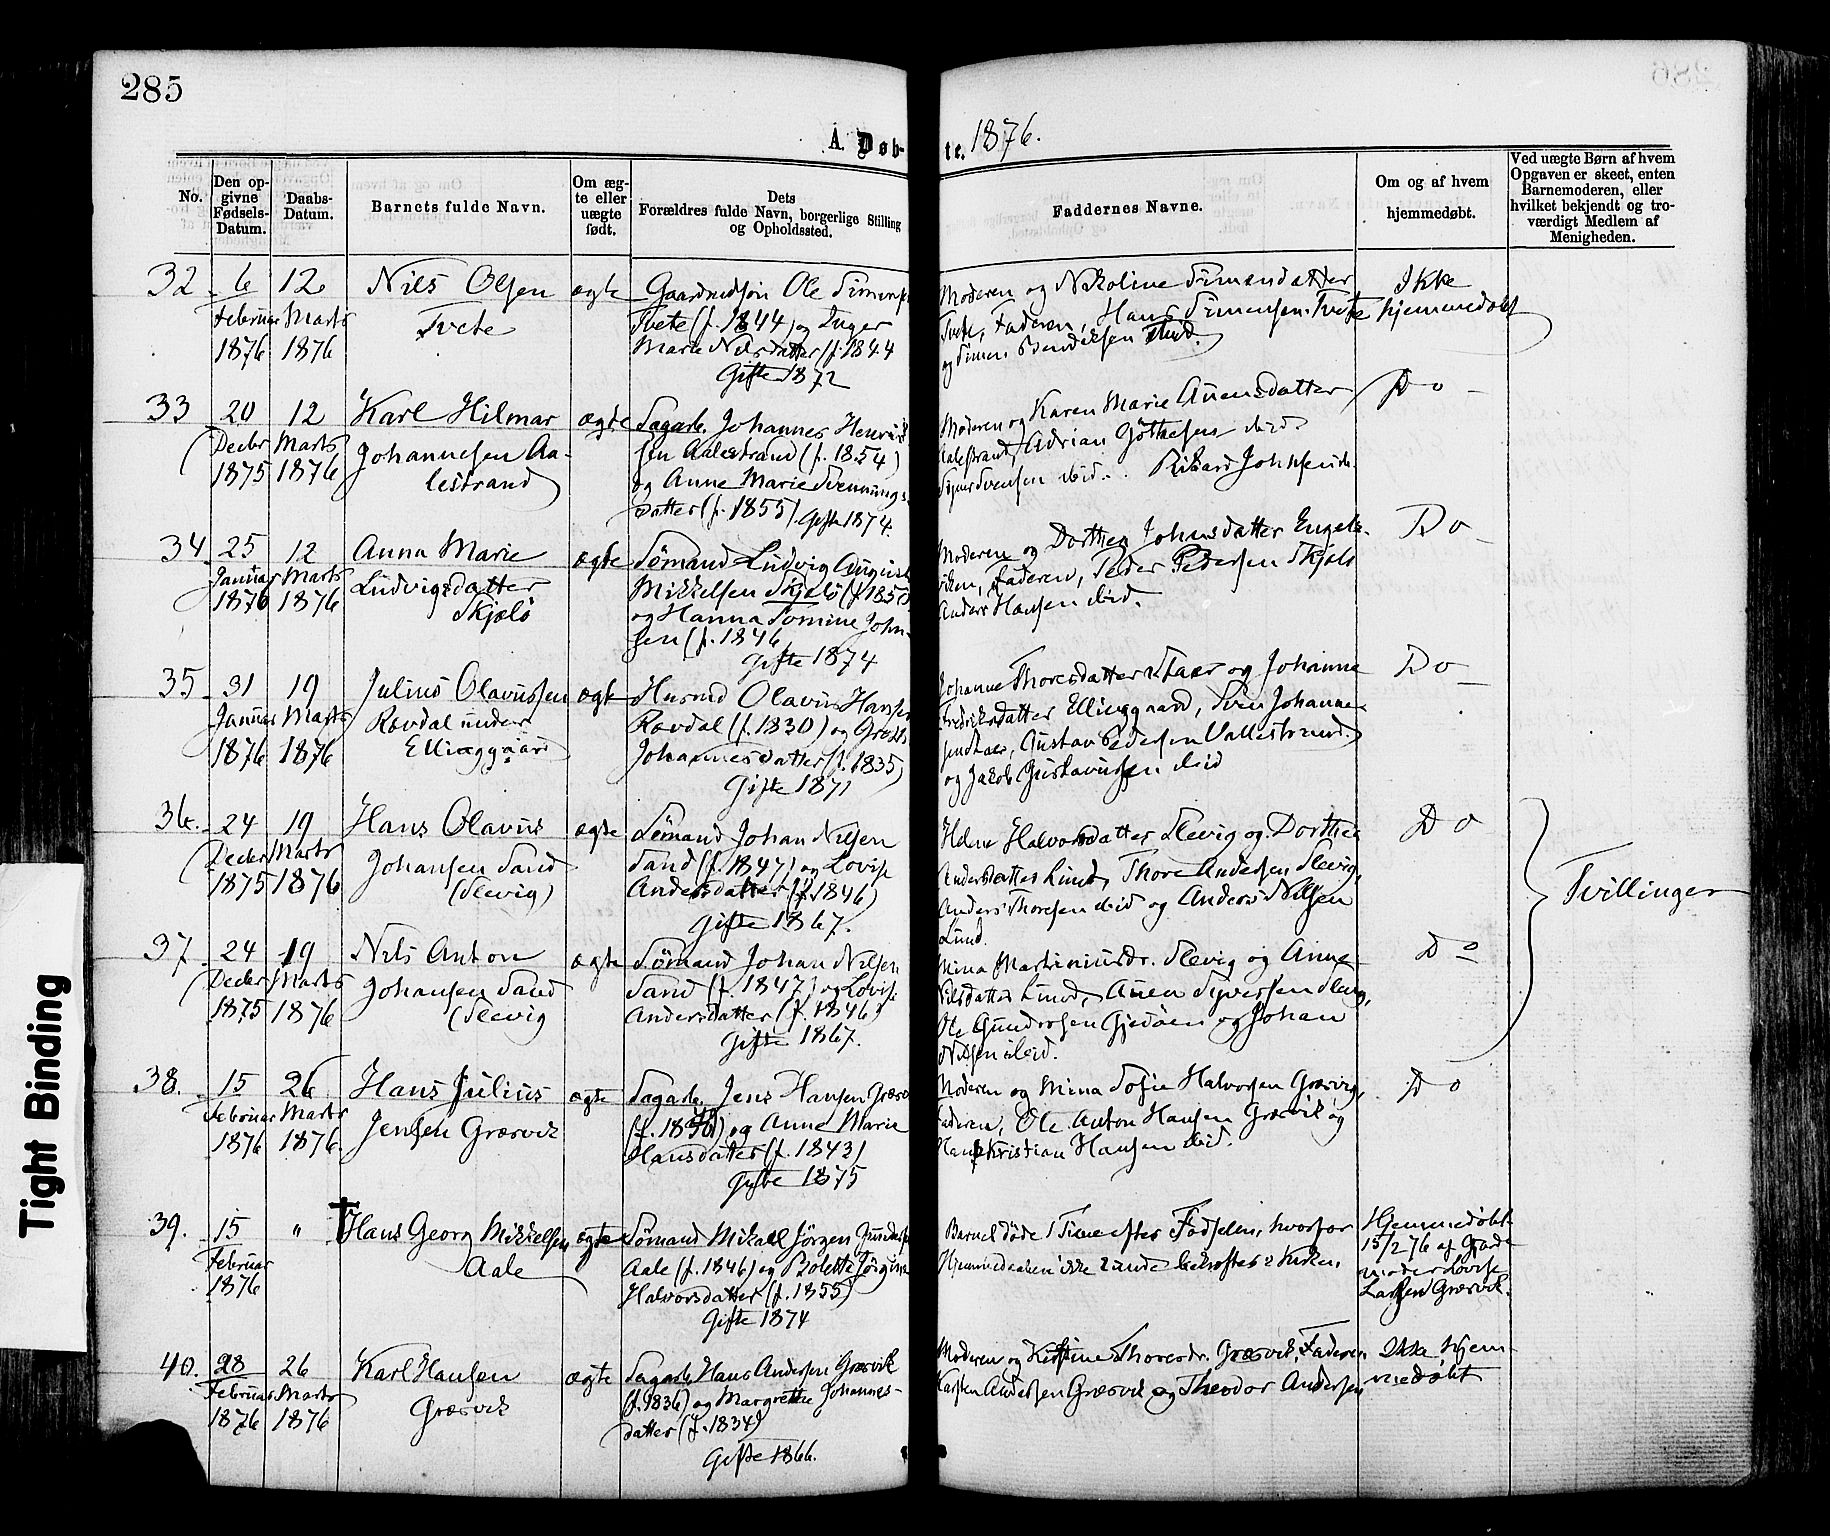 285
A. Døb-
te. 1876.
No.
Den op-
givne
Fødsels-
Datum.
Daabs-
Datum.
Barnets fulde Navn.
Om æg-
te eller
uægte
født.
Dets
Forældres fulde Navn, borgerlige Stilling
og Opholdssted.
Faddernes Navne.
Om og af hvem
hjemmedøbt.
Ved uægte Børn af hvem
Opgaven er skeet, enten
Barnemoderen, eller
hvilket bekjendt og tro-
værdigt Medlem af
Menigheden.
32
6
Februar
1876
12
Marts
1876
Nils Olsen
Tvete
ægte
Ole Simens
Tvete (f. 1844) og Inger
Marie Nilsdatter (f. 1844
Gifte 1872
Moderen og Nikoline Simensdatter
Tvete, Faderen, Hans Simensen Tvete
og Simen Bendiksen ibid.
Ikke
hjemmedøbt
33
20
Decbr
1875
12
Marts
1876
Karl Hilmar
Johannesen Aa-
lestrand
ægte
Sagarb. Johannes Henriks
sen Aalestrand (f. 1854)
og Anne Marie Svennings-
datter (f. 1855) Gifte 1874.
Moderen og Karen Marie Auensdatter
Aalestrand, Adrian ibid.
Svensen ibid.
Do
34
25
Januar
1876
12
Marts
1876
Anna Marie
Ludvigsdatter
Skjelö
ægte
Sömand Ludvig August
Mikkelsen Skjelö (f. 1850
og Hanna Tomine John-
sen (f. 1846
Gifte 1874
Moderen og Dorthea Johansdatter Engels-
viken, Faderen, Peder Pedersen Skjelö
Anders Hansen ibid.
Do
35
31
Januar
1876
19
Marts
1876
Julius Olavussen
Rævdal under
Ellinggaard
ægte
Husmd Olavus Hansen
Rævdal (f. 1830) og Grethe
Johannesdatter (f. 1835)
Gifte 1871
Johanne Thoresdatter Staer og Johanne
Fredriksdatter Ellinggaard, Sven Johanne-
sen Staer, Gustav Pedersen Vallestrand
og Jakob Gustavussen ibid
Do
36.
24
Decbr
1875
19
Marts
1876
Hans Olavus
Johansen Sand
(Slevig)
ægte
Sömand Johan Nilsen
Sand (f. 1847) og Lovise
Andersdatter (f. 1846)
Gifte 1867.
Helene Halvorsdatter Slevig og Dorthea
Andersdatter Lund, Thore Andersen Slevig,
Anders Thoresen ibid og Anders Nilsen
Lund.
Do
Tvillinger
37.
24
Decbr
1875
19
Marts
1876
Nils Anton
Johansen Sand
(Slevig
ægte
Sömand Johan Nilsen
Sand (f. 1847) og Lovise
Andersdatter (f. 1846)
Gifte 1867.
Mina Martiniusdr. Slevig og Anne
Nilsdatter Lund, Auen Syversen Slevig,
Ole Gundersen Gjedöen og Johan
Nilsen ibid.
Do
38.
15
Februar
1876
26
Marts
1876.
Hans Julius
Jensen Græsvik
ægte
Sagarb. Jens Hansen Græsv
og Anne Marie
Hansdatter (f. 1843)
Gifte 1875
Moderen og Mina Sofie Halvorsen Græsvig,
Faderen, Ole Anton Hansen Græsvik og
Hans Kristian Hansen ibid.
Do
39.
15
Februar
1876
"
Hans Georg Mikkelsen
Aale
ægte
Sömand Mikael Jörgen Gunders
Aale (f. 1846) og Bolette Jörgine
Halvorsdatter (f. 1855)
Gifte 1874
Barnet döde 1 Time efter Födselen, hvorfor
Hjemmedaaben ikke kunde bekræftes i Kirken.
Hjemmedöbt
15/2 76 af Gjorde-
moder Lovise
Larsen Græsvik.
40.
28
Februar
1876
26
Marts
1876
Karl Hansen
Græsvik
ægte
Sagarb. Hans Andersen Græsvik
(f. 1836) og Margrethe Johannes-
datter (f. 1834)
Gifte 1866.
Moderen og Kirstine Thoresdr. Græsvik, Faderen
Karsten Andersen Græsvik og Theodor Andersen
Ikke hjem-
medöbt
Tight Binding